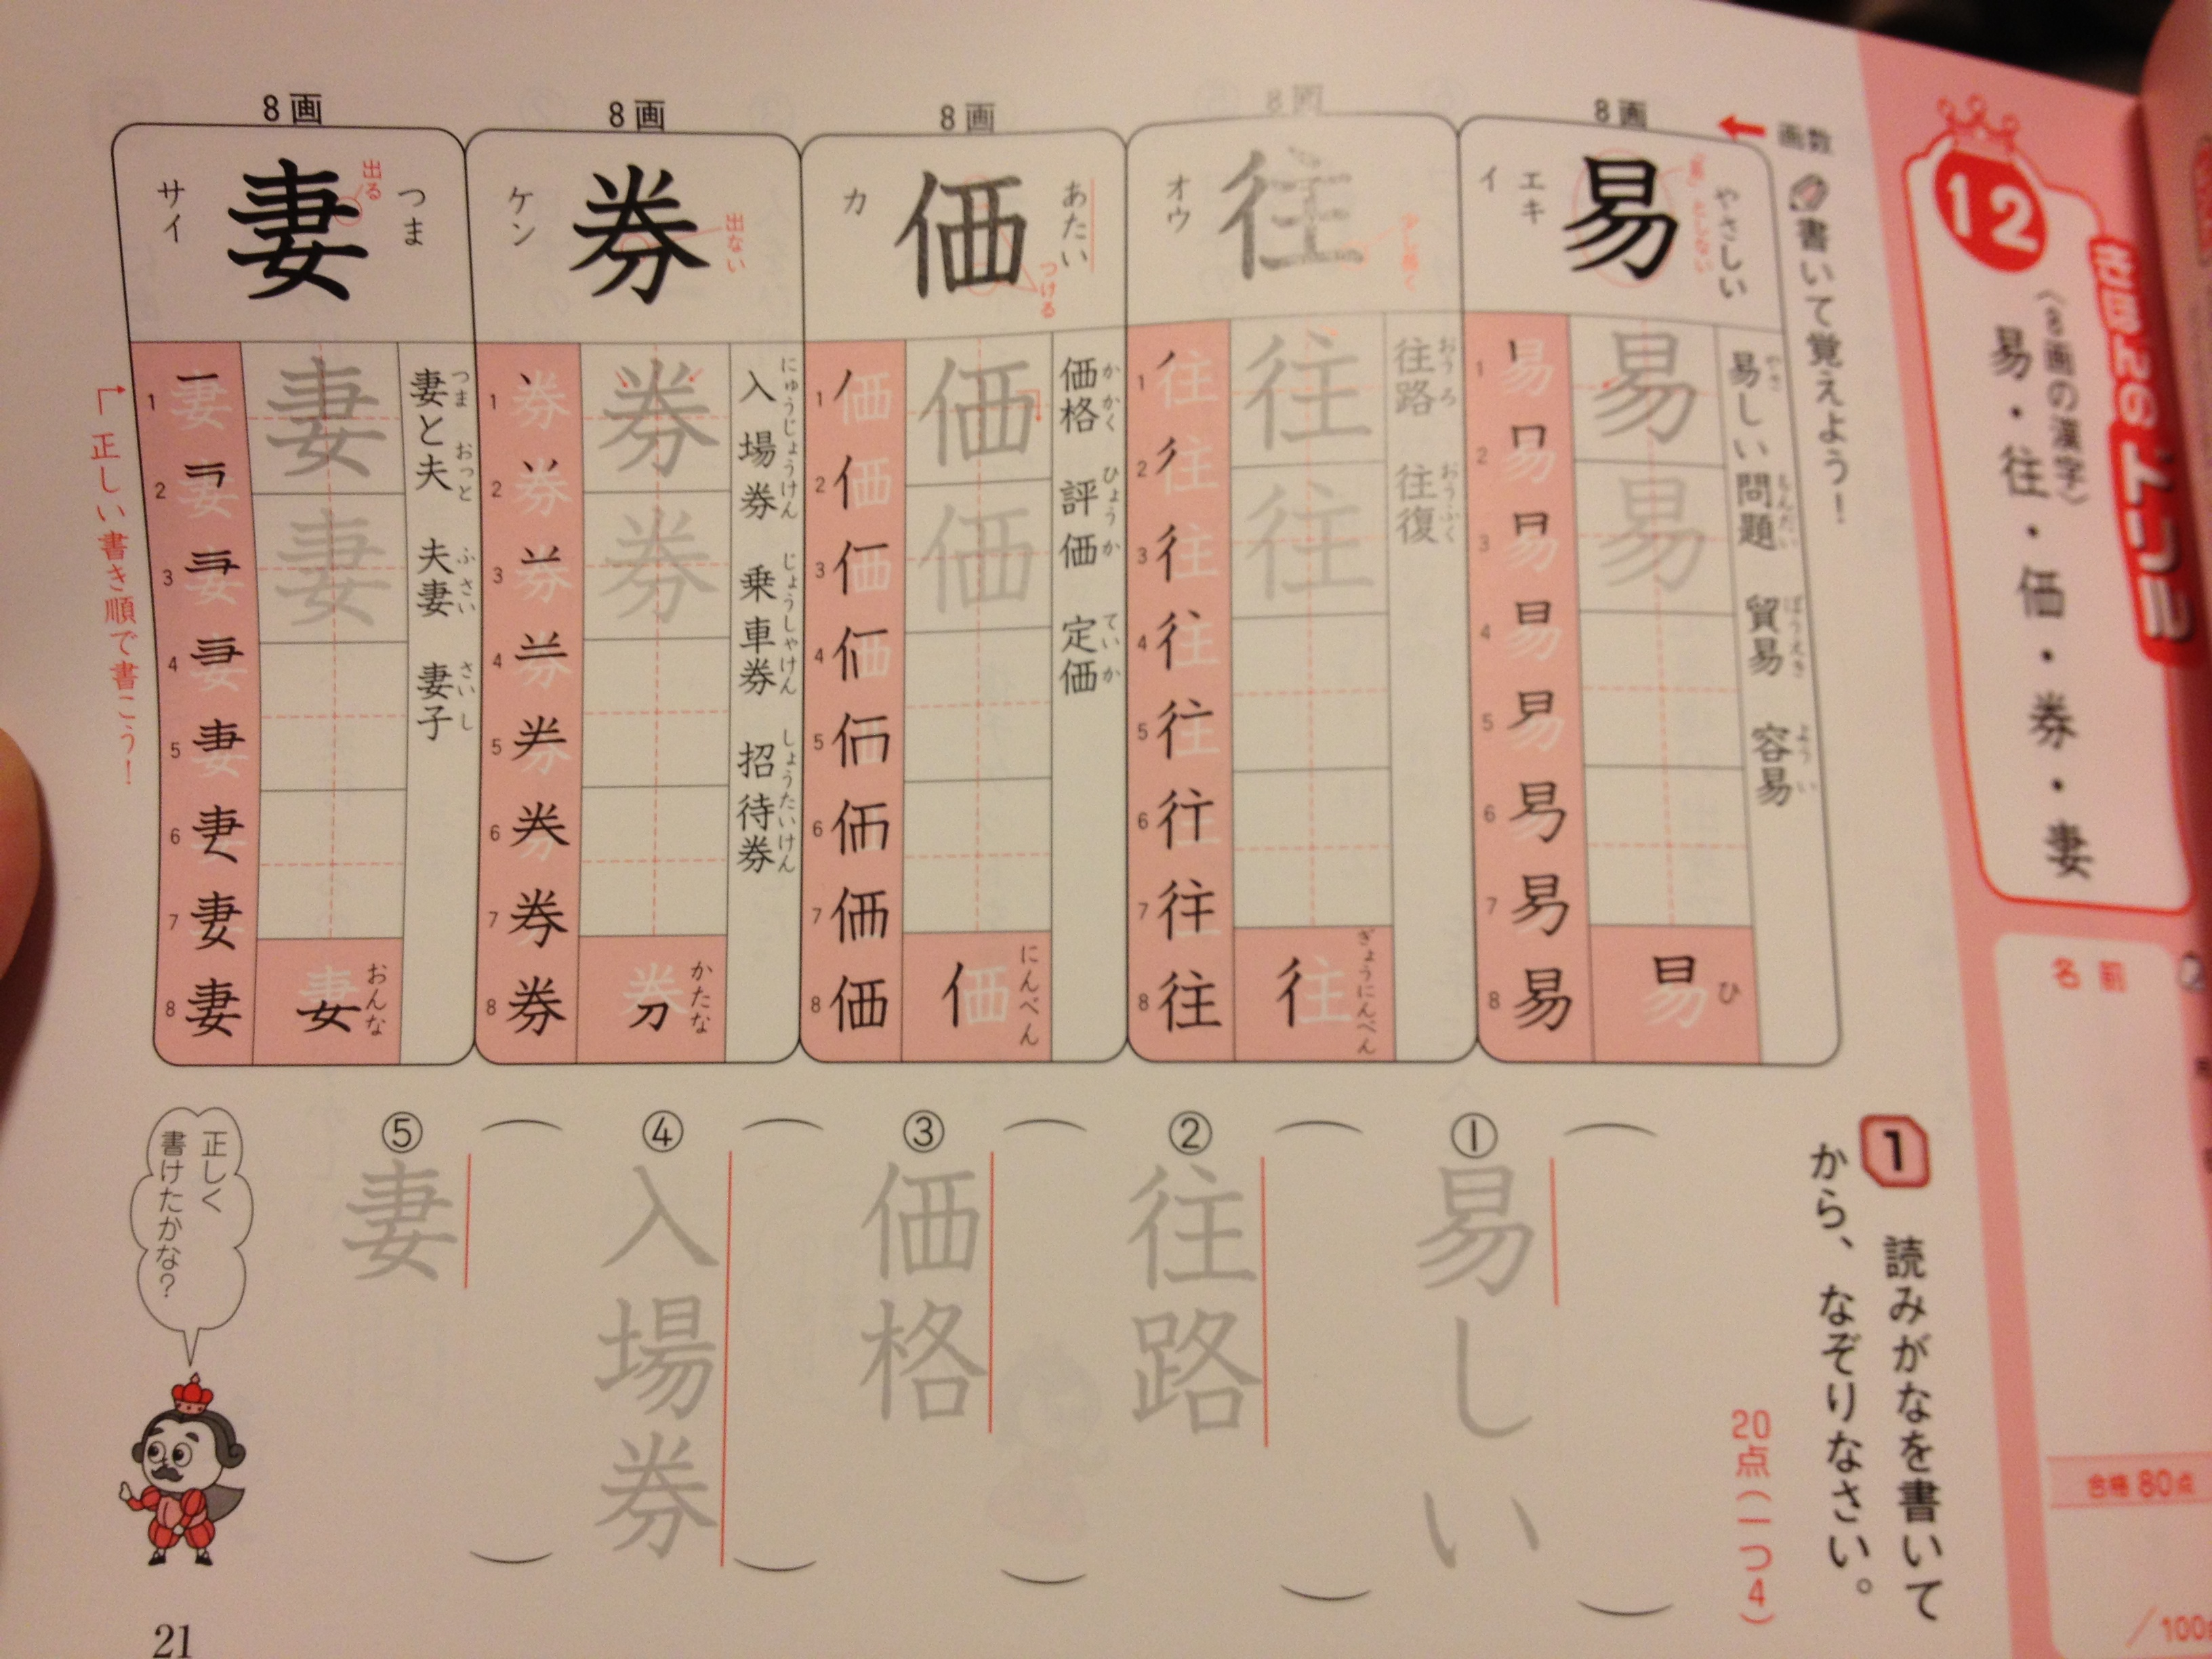 きほんのドリル
12
〈8画の漢字〉
易・往・価・券・妻
名前
合格80点
/100
書いて覚えよう！
画数
8画
易
やさしい
エキ
イ
易しい問題　貿易　容易
やさ　もんだい　ぼうえき　ようい
易
易
ひ
1 2 3 4 5 6 7 8
8画
往
オウ
往路　往復
おうろ　おうふく
往
往
ぎょうにんべん
1 2 3 4 5 6 7 8
8画
価
あたい
カ
つける
価格　評価　定価
かかく　ひょうか　ていか
価
価
にんべん
1 2 3 4 5 6 7 8
8画
券
ケン
出ない
入場券　乗車券　招待券
にゅうじょうけん　じょうしゃけん　しょうたいけん
券
券
かたな
1 2 3 4 5 6 7 8
8画
妻
つま
サイ
出る
妻と夫　夫妻　妻子
つま　おっと　ふさい　さいし
妻
妻
おんな
1 2 3 4 5 6 7 8
正しい書き順で書こう！
1 読みがなを書いて
から、なぞりなさい。
20点(一つ4)
① 易しい
② 往路
③ 価格
④ 入場券
⑤ 妻
正しく
書けたかな？
21